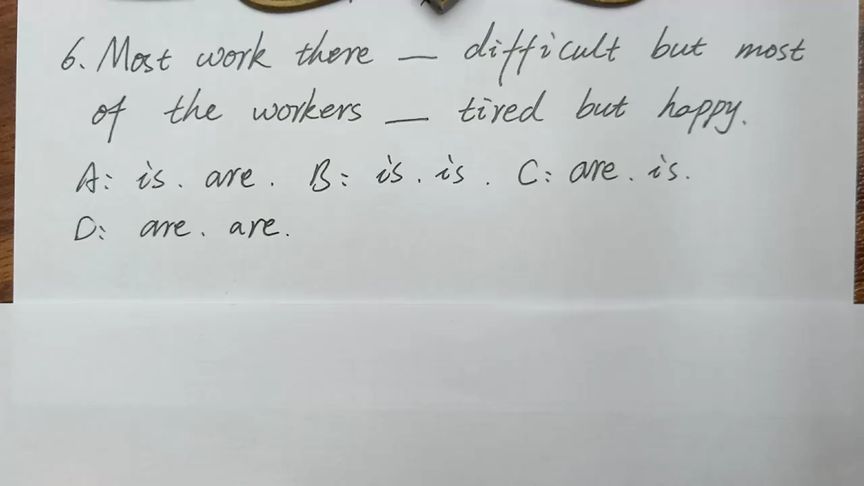 6. Most work there — difficult but most
of the workers — tired but happy.
A: is. are. B: is. is. C: are. is.
D: are. are.